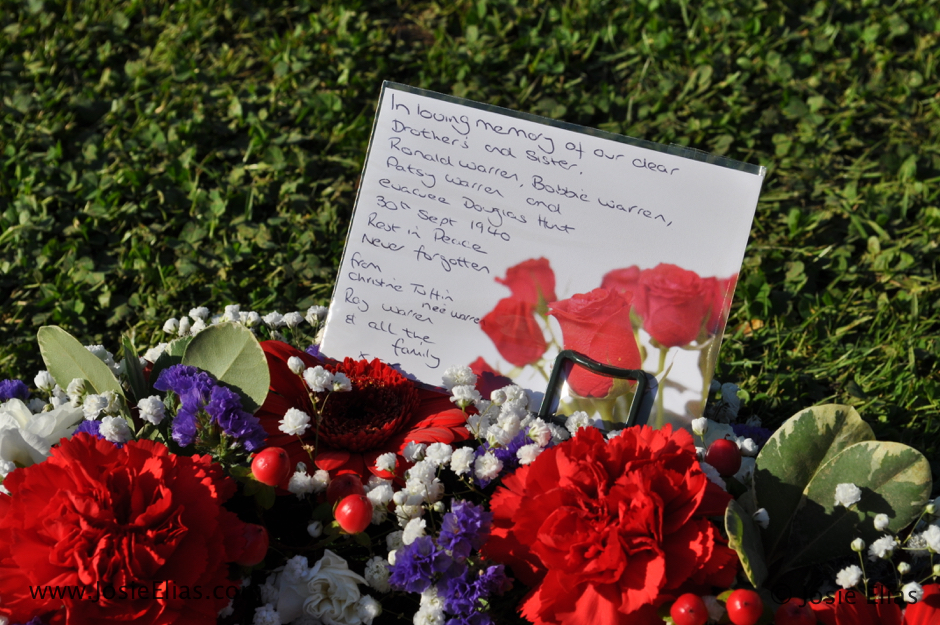 In loving memory of our dear
Brother's and Sister.
Ronald Warren, Bobbie Warren,
Patsy Warren and
evacuee Douglas Hunt
30th Sept 1940
Rest in Peace
Never forgotten
from
Christine Tuffin
nee warren
Roy Warren
& all the
family
x
www.JosieElias.com
© Josie Elias